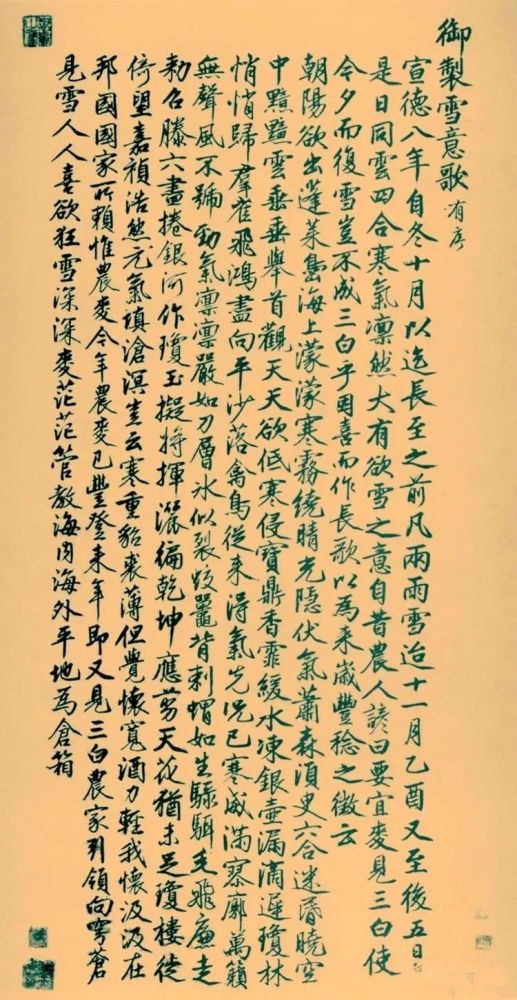 御製雪意歌 有序
宣德八年自冬十月以迄長至之前凡兩雨雪迨十一月乙酉又至後五日
是日同雲四合寒氣凛然大有欲雪之意自昔農人諺曰要宜麥見三白使
今夕而復雪豈不成三白乎因喜而作長歌以為来歲豐稔之徵云
朝陽欲出蓬萊島海上濛濛寒霧繞晴光隱伏氣蕭森湏臾六合迷昏曉空
中黯黯雲垂垂舉首觀天天欲低寒侵寶鼎香霏緩水凍銀壺漏滴遲瓊林
悄悄歸羣雀飛鴻盡向平沙落禽鳥從来得氣先况已寒威滿寥廓萬籟
無聲風不號勁氣凛凛嚴如刀層冰似裂蛟鼉背刺蝟如生騄駬毛飛廉走
勅召滕六盡捲銀河作瓊玉擬将揮灑徧乾坤應剪天花猶未足瓊樓徙
倚望嘉禎浩然元氣瑱滄溟豈云寒重貂裘薄但覺懷寬酒力輕我懷汲汲在
邦國國家所賴惟農麥今年農麥已豐登来年即又見三白農家引領向穹蒼
見雪人人喜欲狂雪深深麥茫茫管教海内海外平地爲倉箱